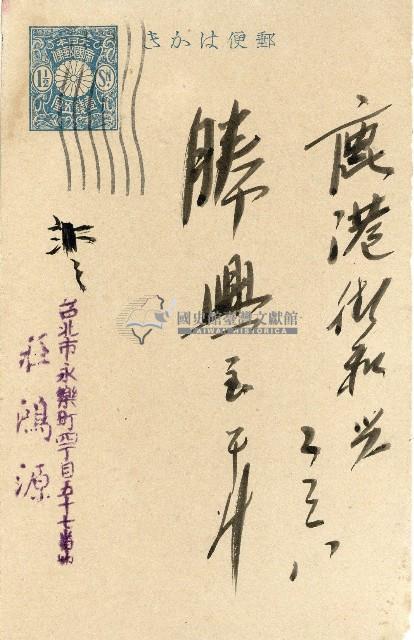 郵便はかき
大日本
帝國郵便
1½ Sn.
壹錢五厘
鹿港街和兴
二三八
勝興
國史館臺灣文獻館
TAIWAN HISTORICA
台北市永樂町四丁目五十七番地
莊鴻源